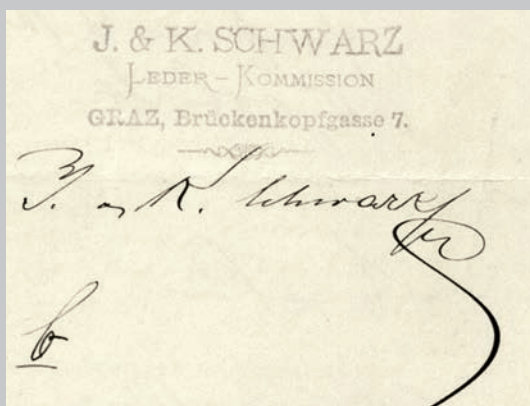 J. & K. SCHWARZ
LEDER-KOMMISSION
GRAZ, Brückenkopfgasse 7.
J. & K. Schwarz